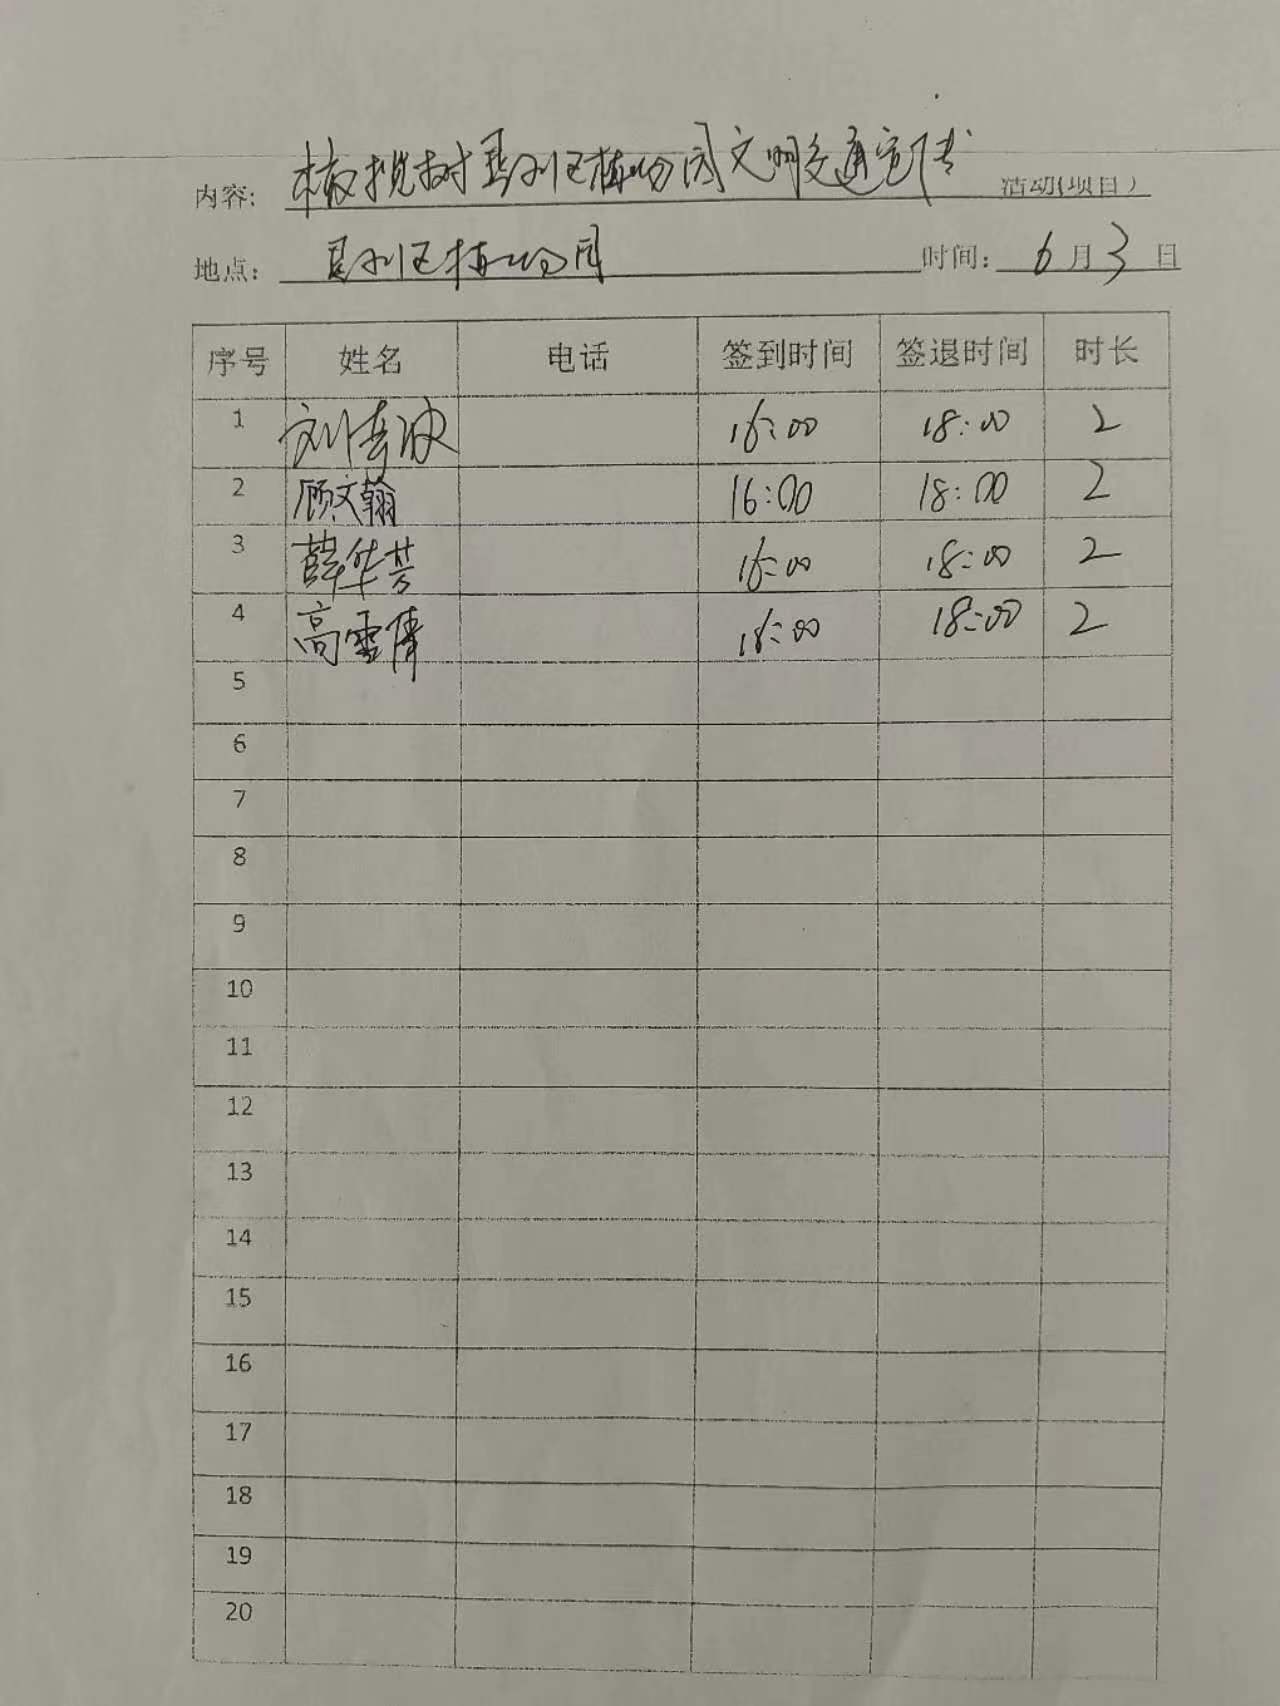 内容: 橄榄树县川区植物园文明交通宣传 活动(项目)
地点: 县川区植物园 时间: 6月3日
序号 姓名 电话 签到时间 签退时间 时长
1 刘 16:00 18:00 2
2 顾文翰 16:00 18:00 2
3 薛华芳 16:00 18:00 2
4 高雪倩 16:00 18:00 2
5
6
7
8
9
10
11
12
13
14
15
16
17
18
19
20